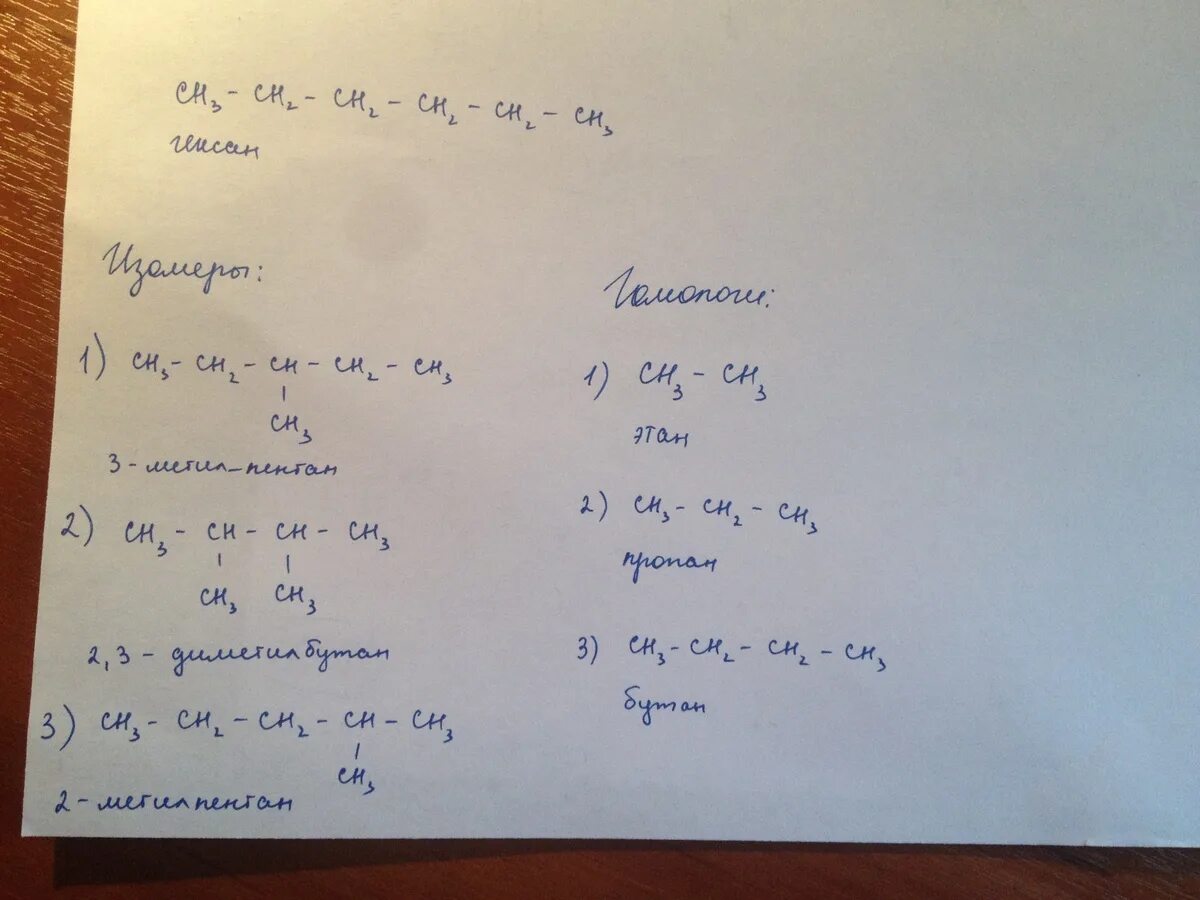 CH₃ - CH₂ - CH₂ - CH₂ - CH₂ - CH₃
гексан
Изомеры:
1) CH₃ - CH₂ - CH - CH₂ - CH₃
CH₃
3 - метил-пентан
2) CH₃ - CH - CH - CH₃
CH₃ CH₃
2,3 - диметилбутан
3) CH₃ - CH₂ - CH₂ - CH - CH₃
CH₃
2 - метилпентан
Гомологи:
1) CH₃ - CH₃
этан
2) CH₃ - CH₂ - CH₃
пропан
3) CH₃ - CH₂ - CH₂ - CH₃
бутан